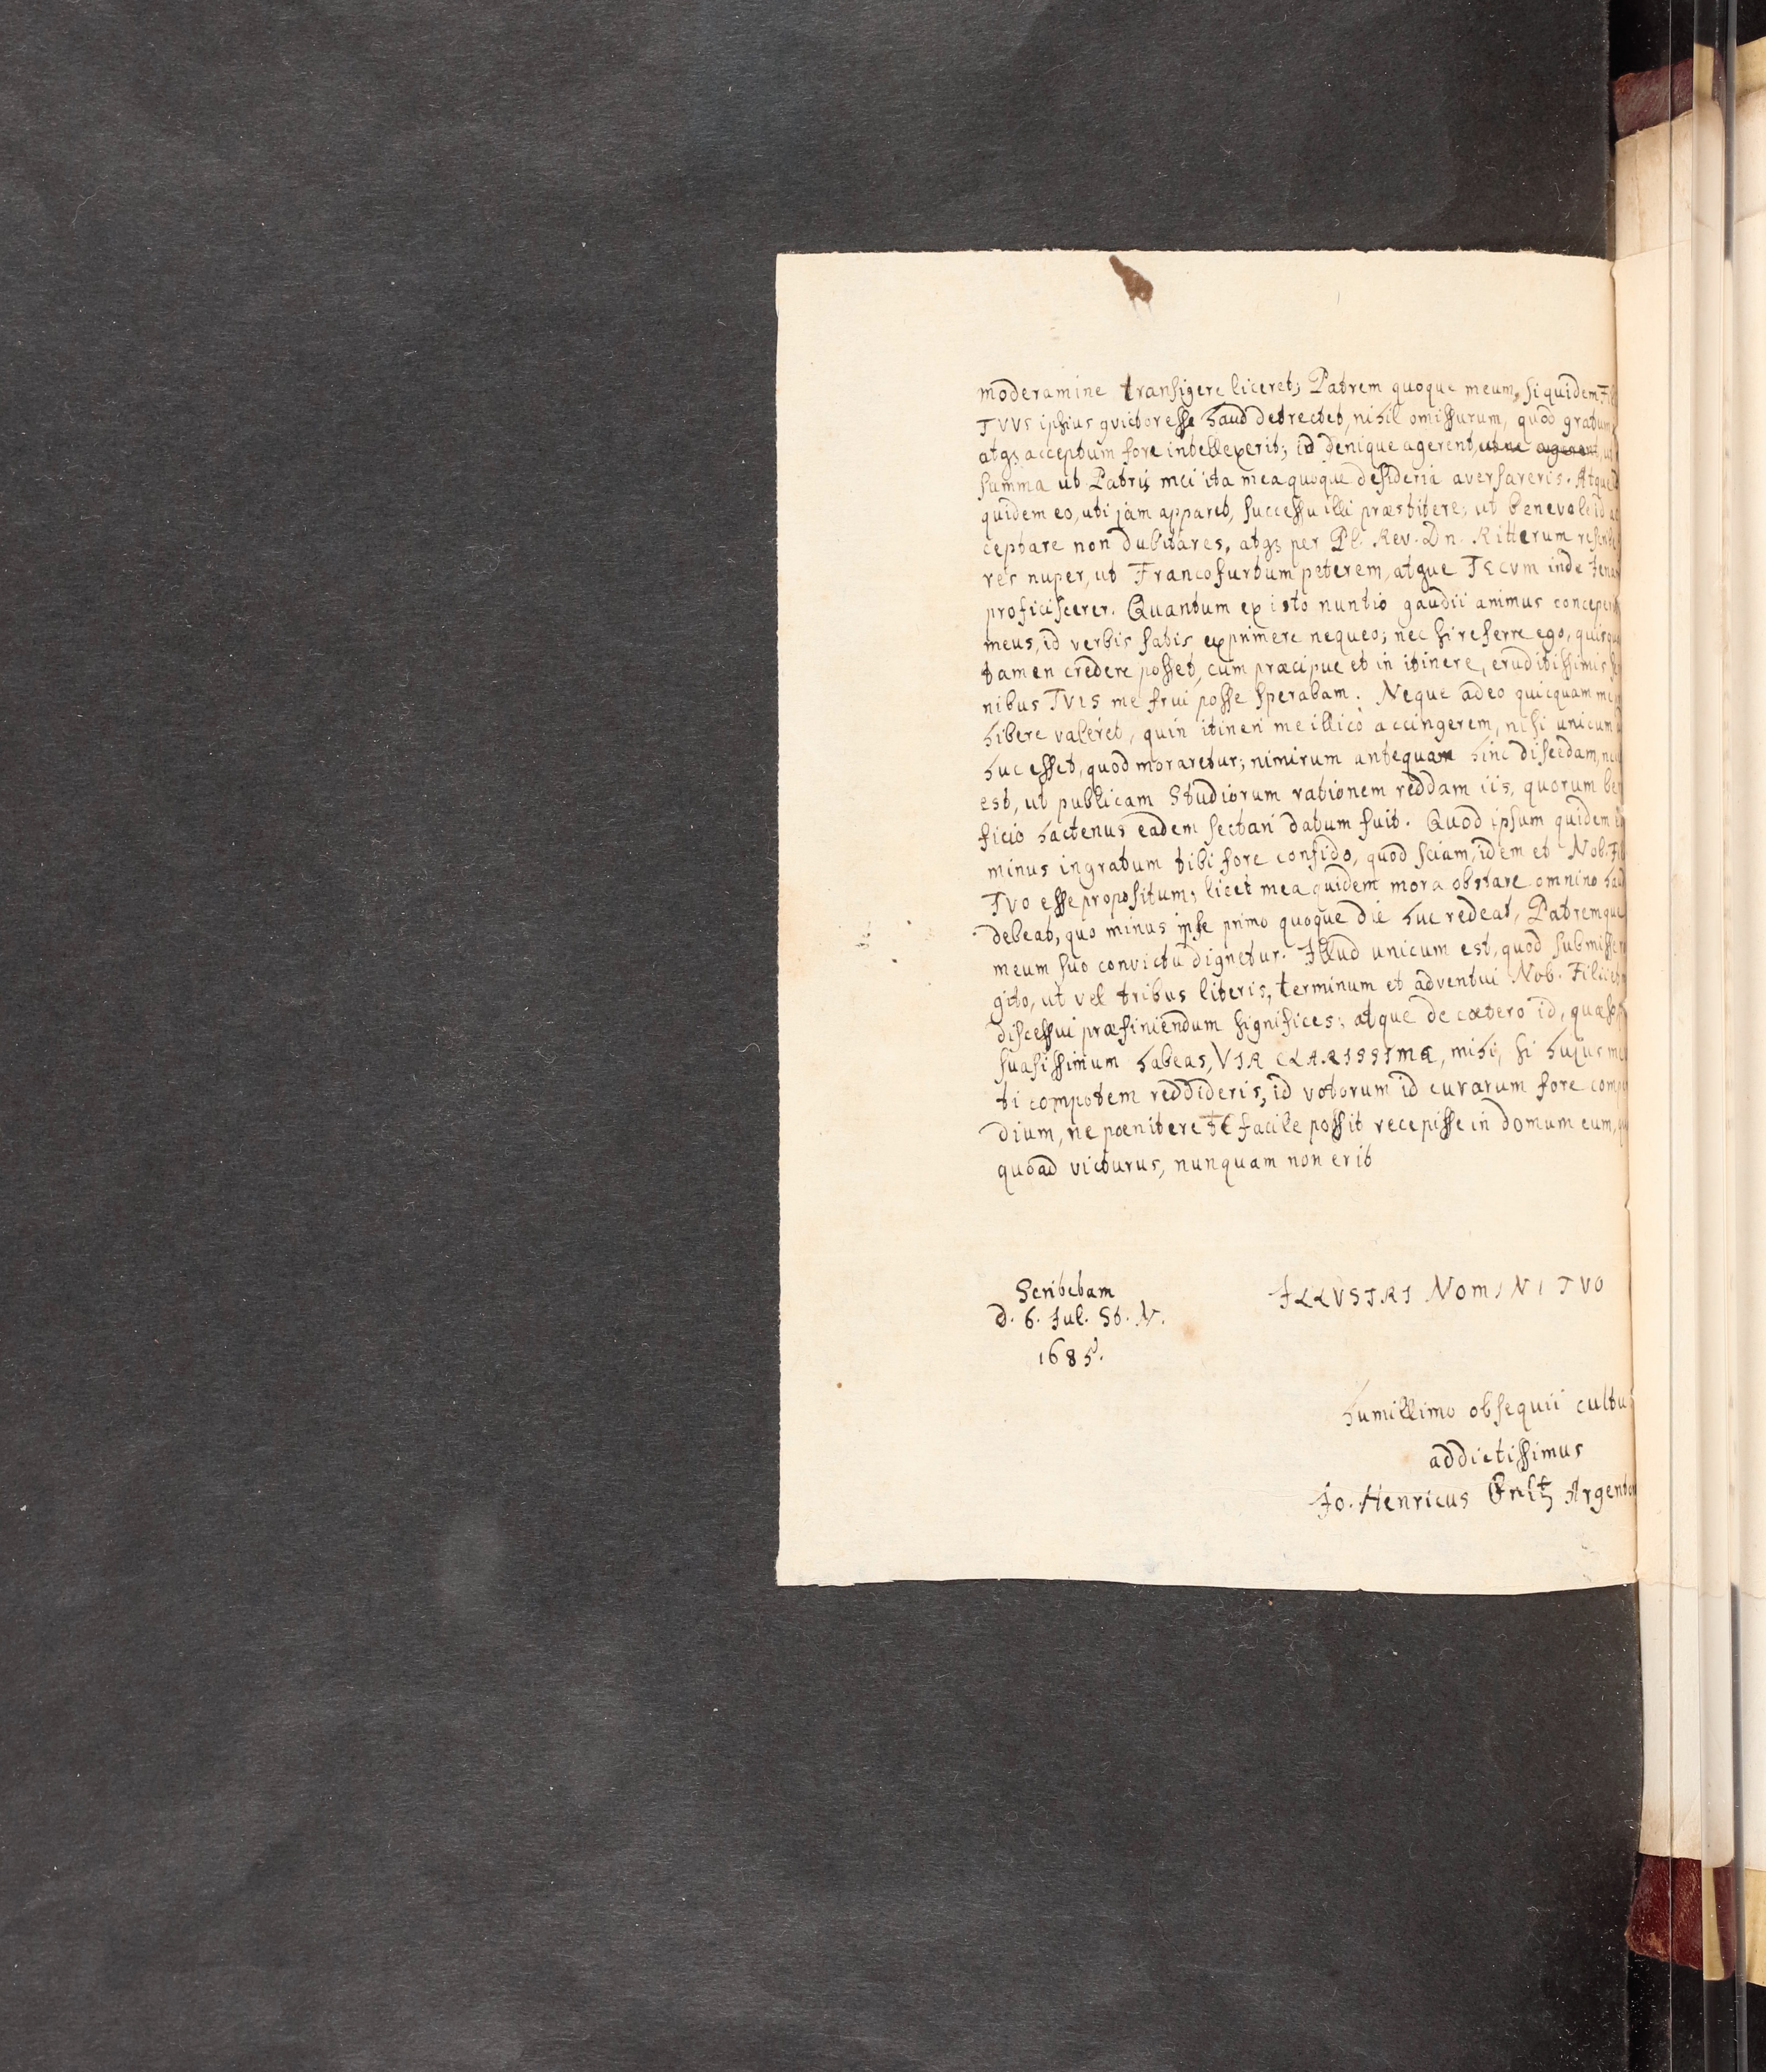 moderamine transigere liceret; Patrem quoque meum, siquidem Fil
TVVS ipsius victor esse haud detrectet, nihil omissurum, quod gratum
atqꝫ acceptum fore intellexerit; id denique agerent, ut ne agerent, ut
summa ut Patris mei ita mea quoque desideria aversareris. Atque
quidem eo, uti jam apparet, successu illi præstitere; ut benevole id ac
ceptare non dubitares, atqꝫ per Pl. Rev. Dn. Ritterum rescribe
res nuper, ut Francofurtum peterem, atque TECVM inde Jenam
proficiscerer. Quantum ex isto nuntio gaudii animus conceperit
meus, id verbis satis exprimere nequeo; nec si referre ego, quisqua
tamen credere posset, cum præcipue et in itinere, eruditissimis
nibus TVIS me frui posse sperabam. Neque adeo quicquam me
hibere valeret, quin itineri me illico accingerem, nisi unicum
huc esset, quod moraretur; nimirum antequam hinc discedam, nec
est, ut publicam Studiorum rationem reddam iis, quorum be
ficio hactenus eadem sectari datum fuit. Quod ipsum quidem
minus ingratum tibi fore confido, quod sciam, idem et Nob. Fil
TVO esse propositum; licet mea quidem mora obstare omnino haud
debeat, quo minus ipse primo quoque die huc redeat, Patremque
meum suo convictu dignetur. Illud unicum est, quod submisse
gito, ut vel tribus literis, terminum et adventui Nob. Filii et
discessui præfiniendum significes; atque de cœtero id, quæso
suasissimum habeas, VIR CLARISSIME, mihi, si hujus me
ti compotem reddideris, id votorum id curarum fore comp
dium, ne pœnitere tE facile possit recepisse in domum eum,
quoad victurus, nunquam non erit
Scribebam
d. 6. Jul. St. N.
1685.
ILLVSTRI NOMINI TVO
humillimo obsequii cultu
addictissimus
Jo. Henricus Fritz Argento